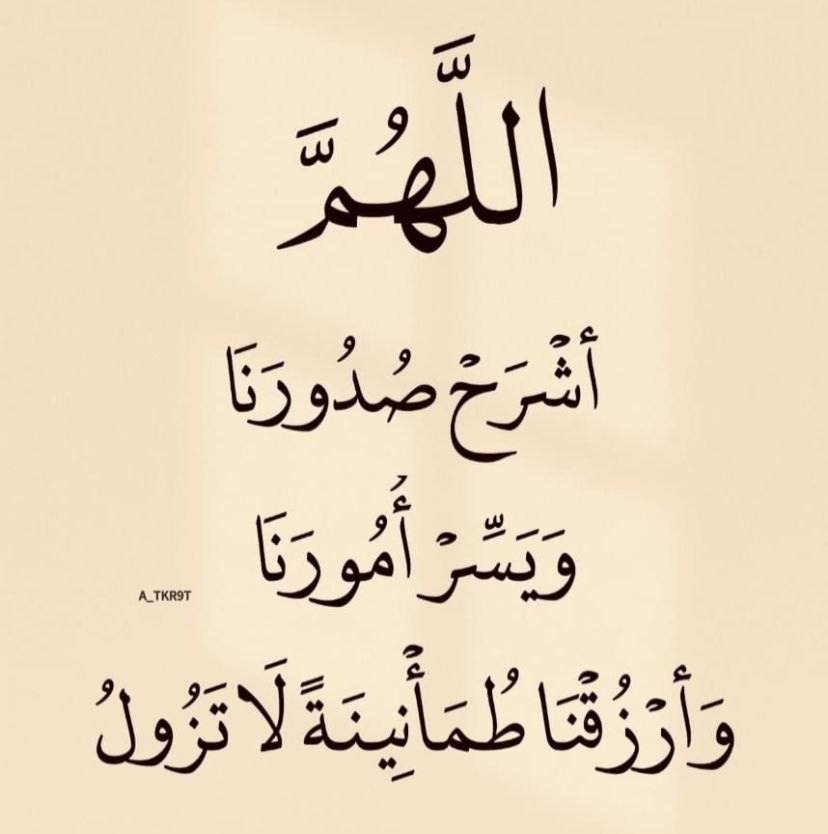 اللَّهُمَّ
أشْرَحْ صُدُورَنَا
وَيَسِّرْ أُمُورَنَا
A_TKR9T
وَأرْزُقْنَا طُمَأْنِينَةً لَا تَزُولُ